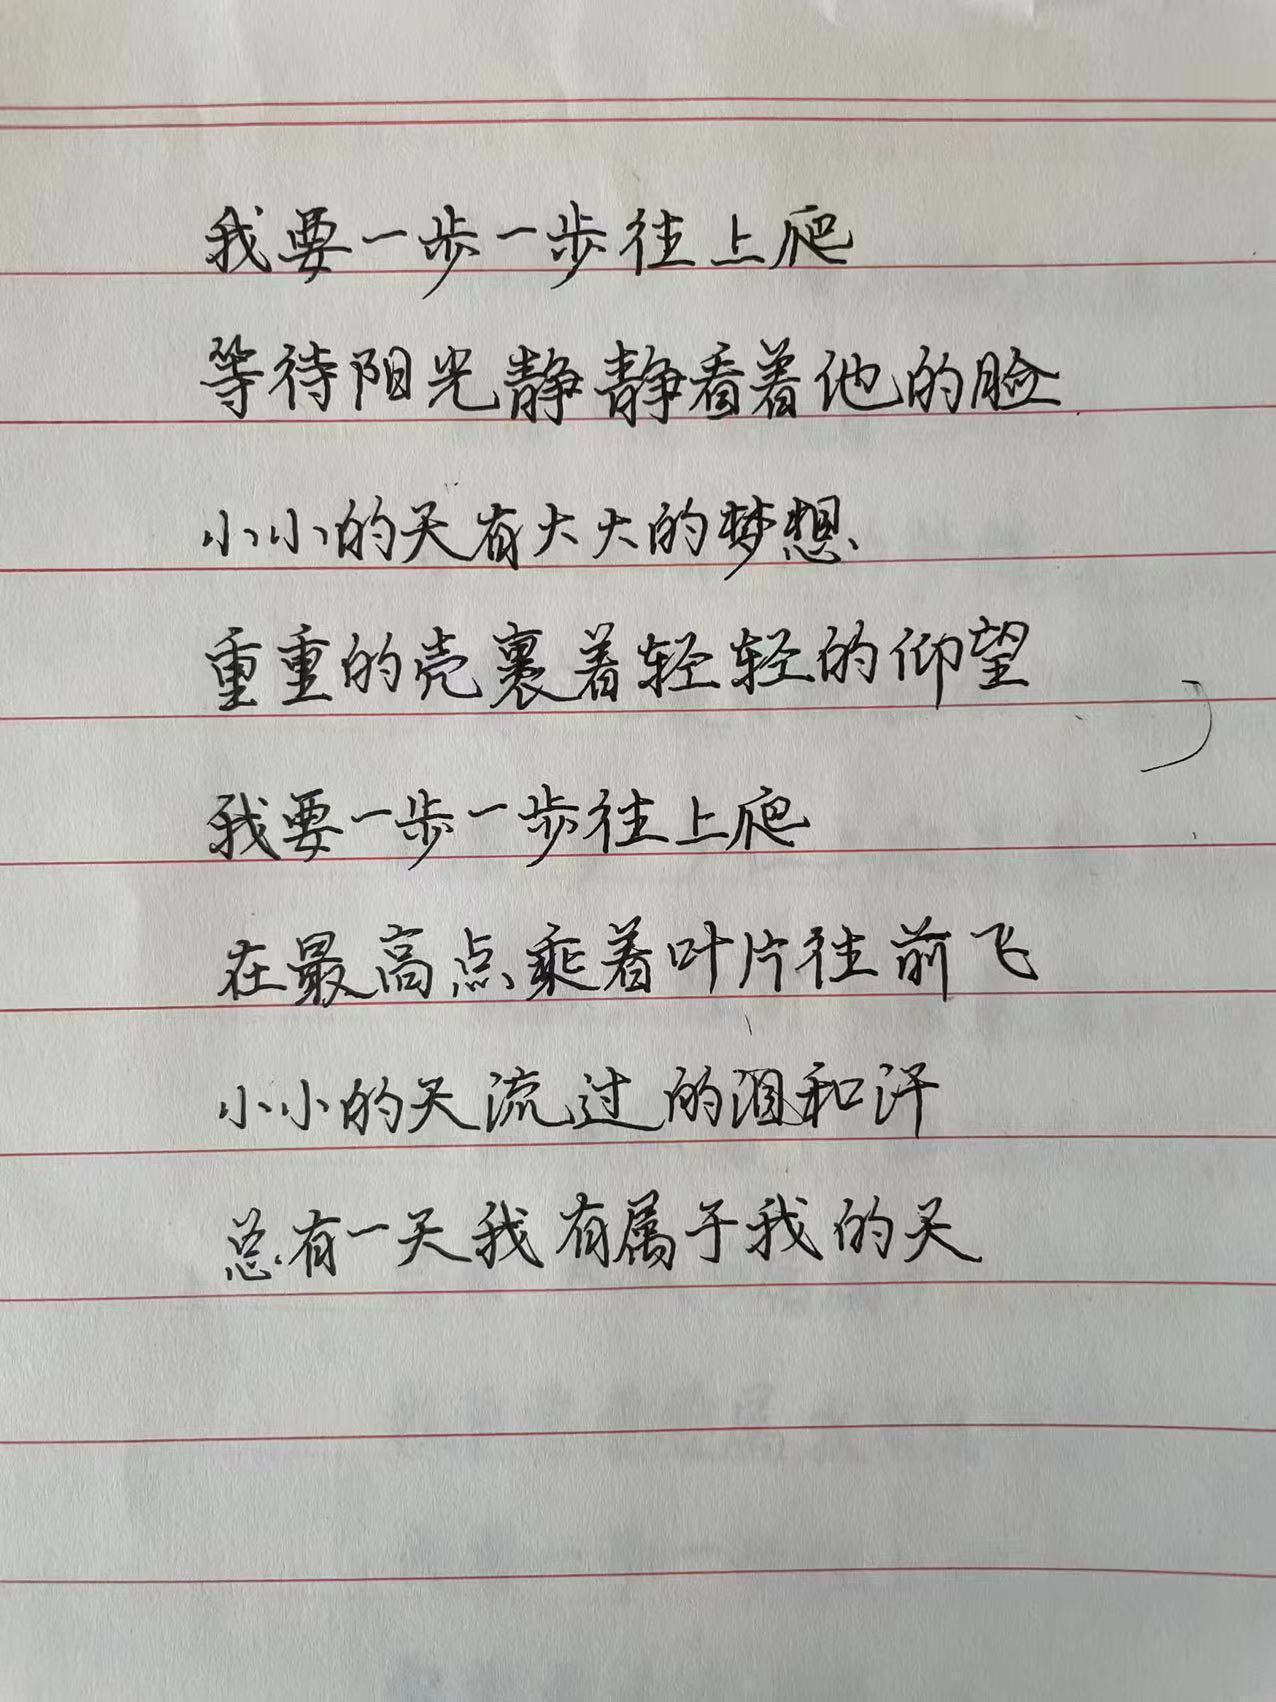 我要一步一步往上爬
等待阳光静静看着他的脸
小小的天有大大的梦想
重重的壳裹着轻轻的仰望
我要一步一步往上爬
在最高点乘着叶片往前飞
小小的天流过的泪和汗
总有一天我有属于我的天